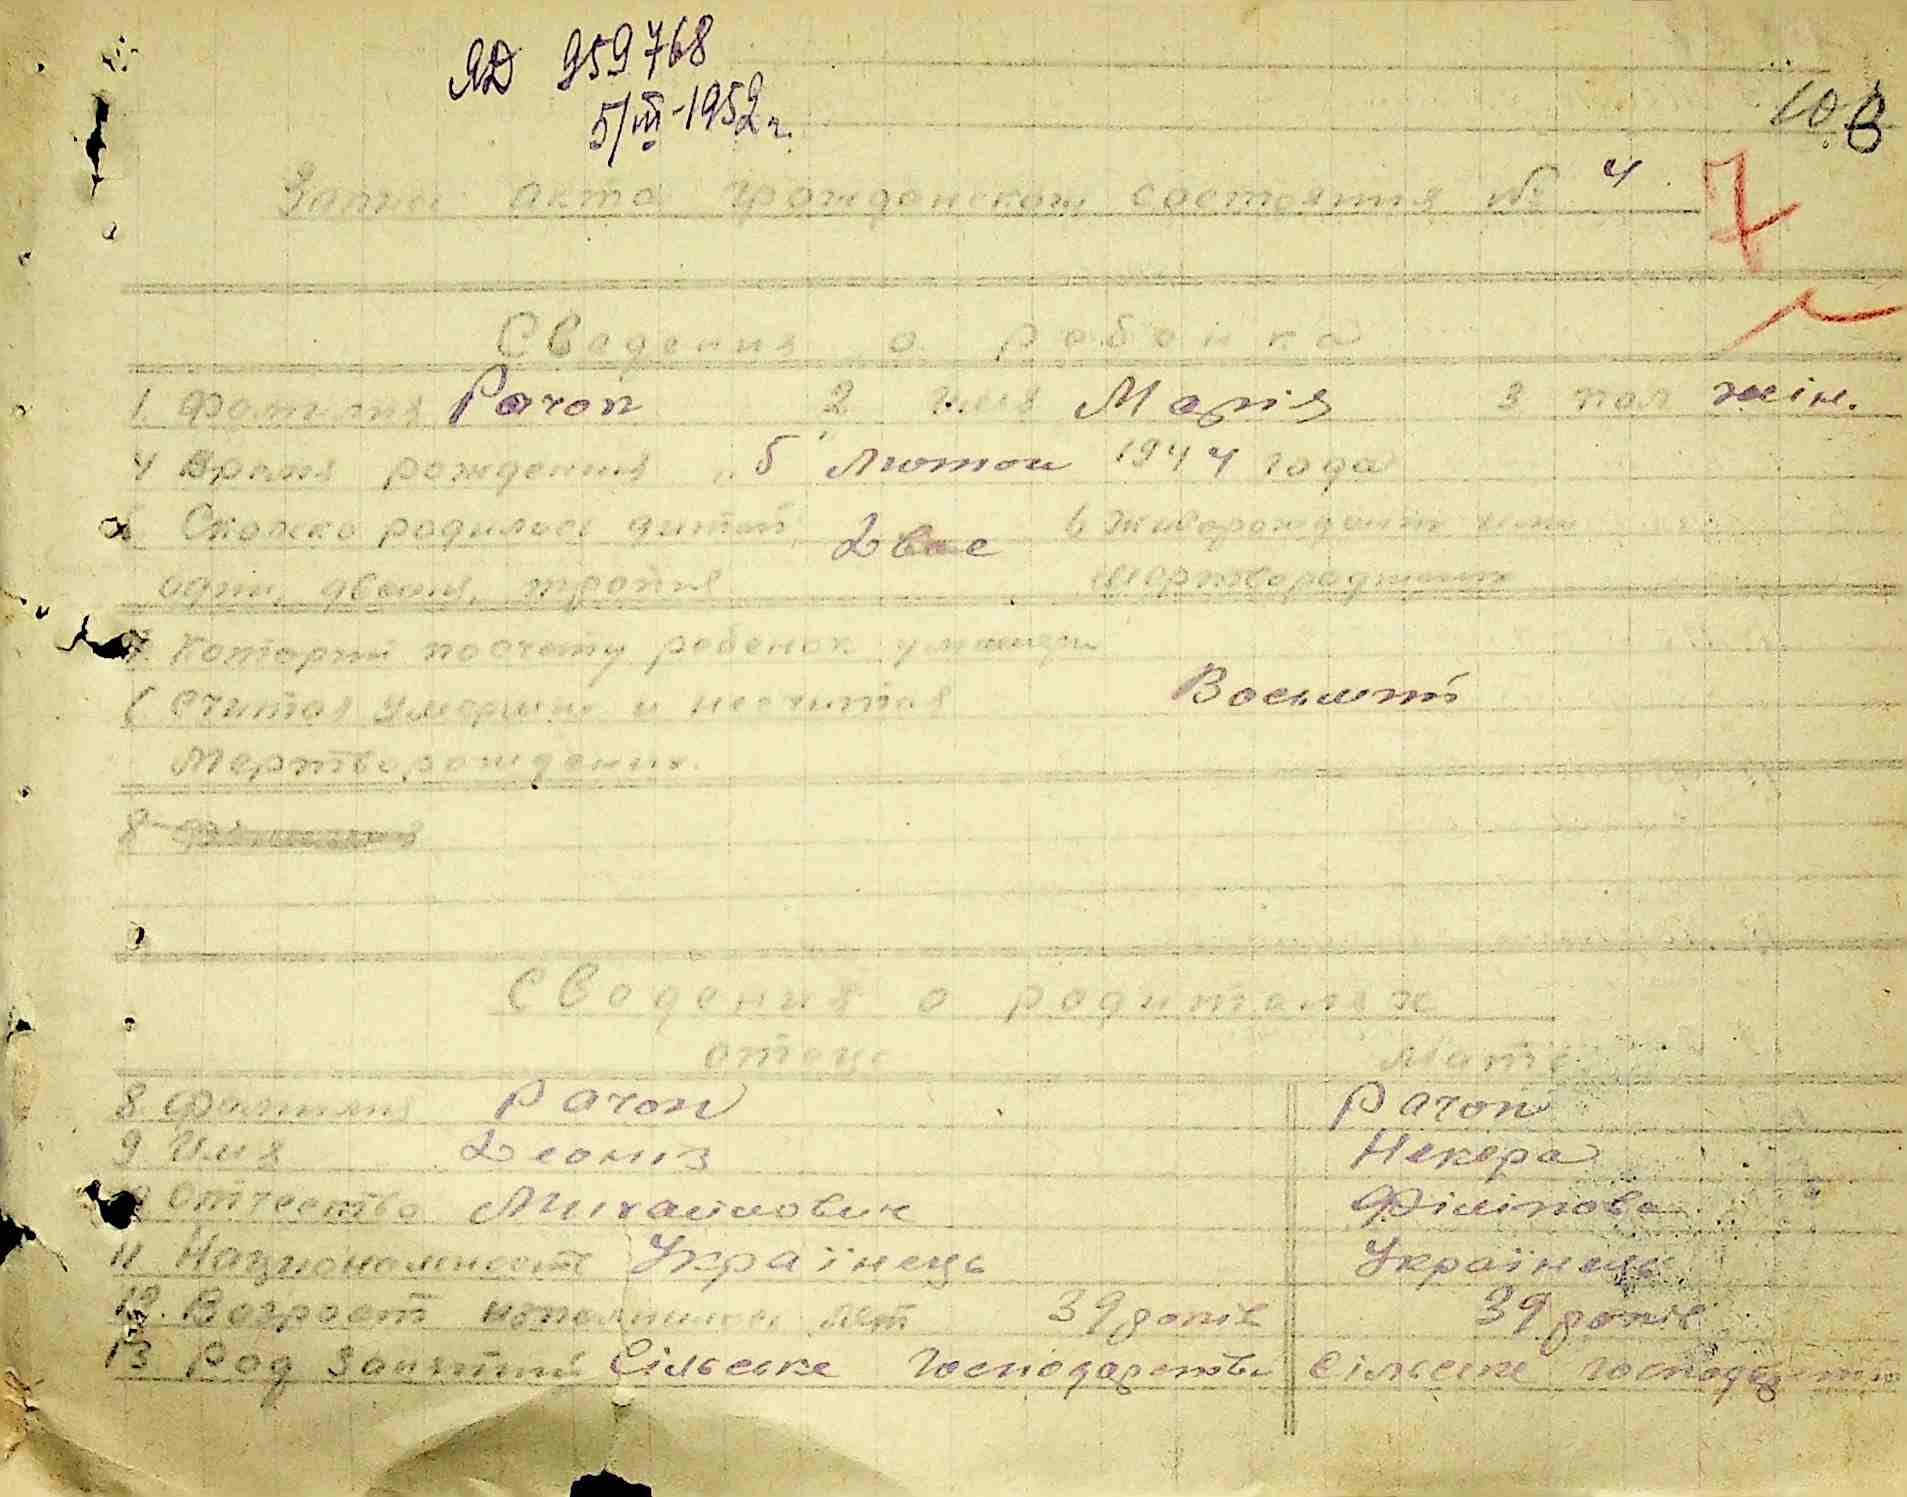 ЯД 959768
5/III-1952 г.
108
Запис акта гражданском состояния № 4
7
Сведения о ребенка
1. Фамилия Рачок 2 Имя Марія 3 пол жін.
4 Время рождения „5" Лютой 1944 года
5 Сколко родилось дитей, 6 живорожденим или
Двое
один, двойня, тройня мертвородженим
7. Которий по счету ребенок у матери
(считая умерших и несчитая Восьмий
Мертворожденних.
8
Сведения о родителях
отец Мать
8. Фамилия Рачок Рачок
9 Имя Деониз Некера
10 Отчество Михайлович Філіпова
11 Национальност Українець Українець
12. Возраст исполнилось лет 39 років 39 років
13 Род занятий Сільське Господарство сільське господарство